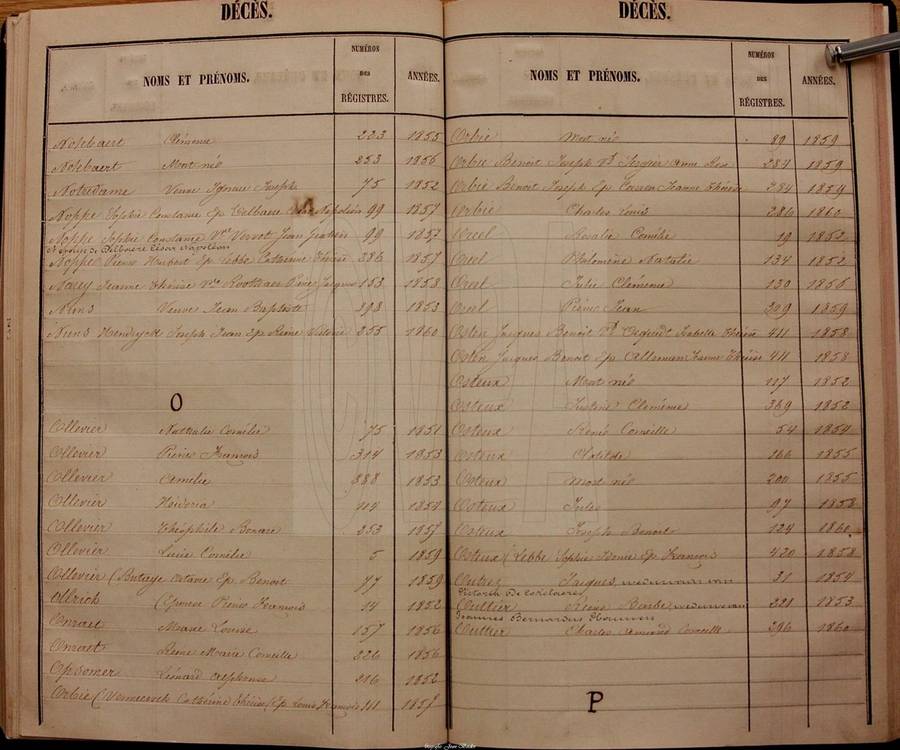 DÉCÈS.
NOMS ET PRÉNOMS. NUMÉROS DES RÉGISTRES. ANNÉES.
Nolebaert Clémence 223 1855
Nolebaert Mort né 253 1856
Notredame Veuve Ignace Joseph 75 1852
Noppe Sophie Constance Ep Delbaere César Napoléon 99 1857
Noppe Sophie Constance Vve Vervot Jean 99 1857
de Delbaere César Napoléon
Noppe Pierre Hubert Ep Lebbe Catherine Thérèse 286 1857
Jeanne Thérèse Pierre Jacques 153 1858
Nuns Veuve Jean Baptiste 393 1853
Nuns Joseph Jean Ep Reine Victoire 255 1860
O
Ollevier Nathalie Cornélie 75 1851
Ollevier Pierre François 314 1853
Ollevier Camélie 388 1853
Ollevier 114 1854
Ollevier Théophile Bonare 253 1857
Ollevier Lucie Cornélie 5 1859
Ollevier (Butaye Octavie Ep Benoit 77 1859
Ollrich Pierre François 14 1852
Omaet Marie Louise 157 1856
Omaet Reine Marie Corneille 226 1856
Opsomer Léonard Alphonse 216 1852
Orbie (Vermeersch Catherine Thérèse) Ep Louis François 211 1857
DÉCÈS.
NOMS ET PRÉNOMS. NUMÉROS DES RÉGISTRES. ANNÉES.
Orbie Mort né 89 1859
Orbie Benoit Joseph Anne 284 1859
Orbie Benoit Joseph Ep Jeanne Thérèse 284 1859
Orbie Charles Louis 286 1860
Oreel Rosalie Cornélie 19 1852
Oreel Philomène Natalie 134 1852
Oreel Julie Clémence 130 1856
Oreel Pierre Jean 209 1859
Osten Jacques Benoit Isabelle Thérèse 411 1858
Osten Jacques Benoit Ep Alleman Jeanne Thérèse 411 1858
Osteux Mort né 117 1852
Osteux Justine Clémence 369 1852
Osteux René Corneille 54 1854
Osteux Clotilde 166 1855
Osteux Mort né 200 1855
Osteux Jules 97 1858
Osteux Joseph Benoit 124 1860
Osteux (Lebbe Sophie Ep François 420 1858
Outrez Jacques weduwnaer van 31 1854
Victoria De
Outtier Reine Barbe weduwe van 221 1853
Joannes Bernardus
Outtier Charles Armand Corneille 296 1860
P